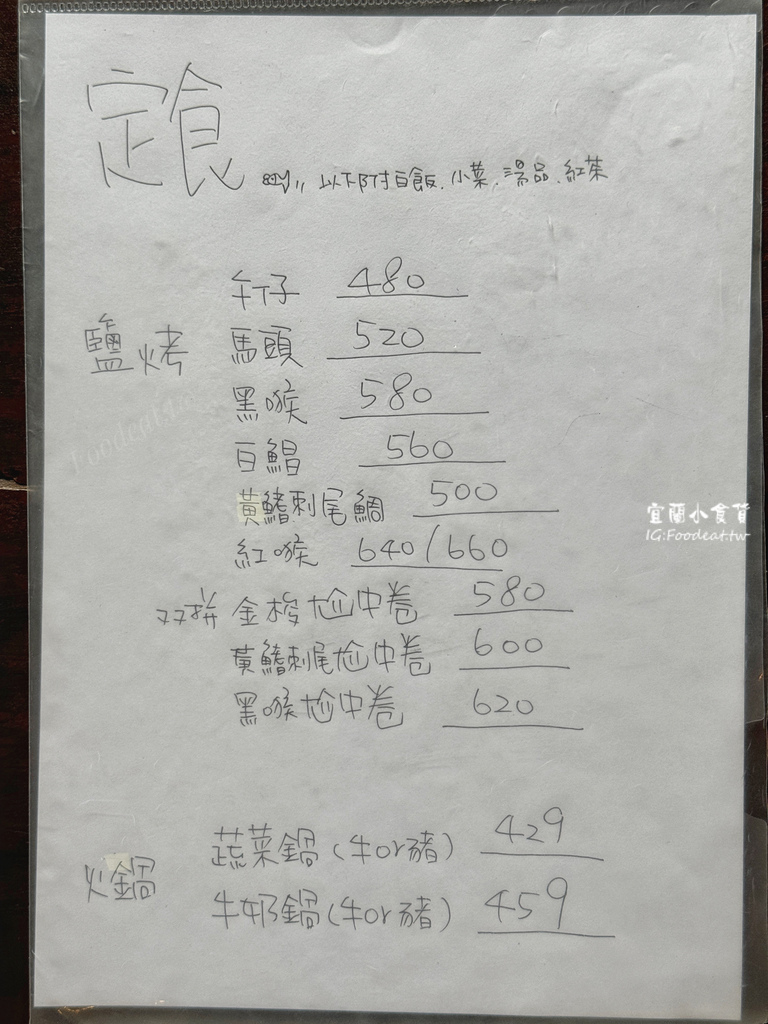 定食 以下附白飯、小菜、湯品、紅茶
鹽烤
午仔 480
馬頭 520
黑喉 580
白鯧 560
黃鰭刺尾鯛 500
紅喉 640/660
双拼 金梭尬中卷 580
黃鰭刺尾尬中卷 600
黑喉尬中卷 620
火鍋
蔬菜鍋(牛or豬) 429
牛奶鍋(牛or豬) 459
宜蘭小食貨
IG:Foodeat.tw